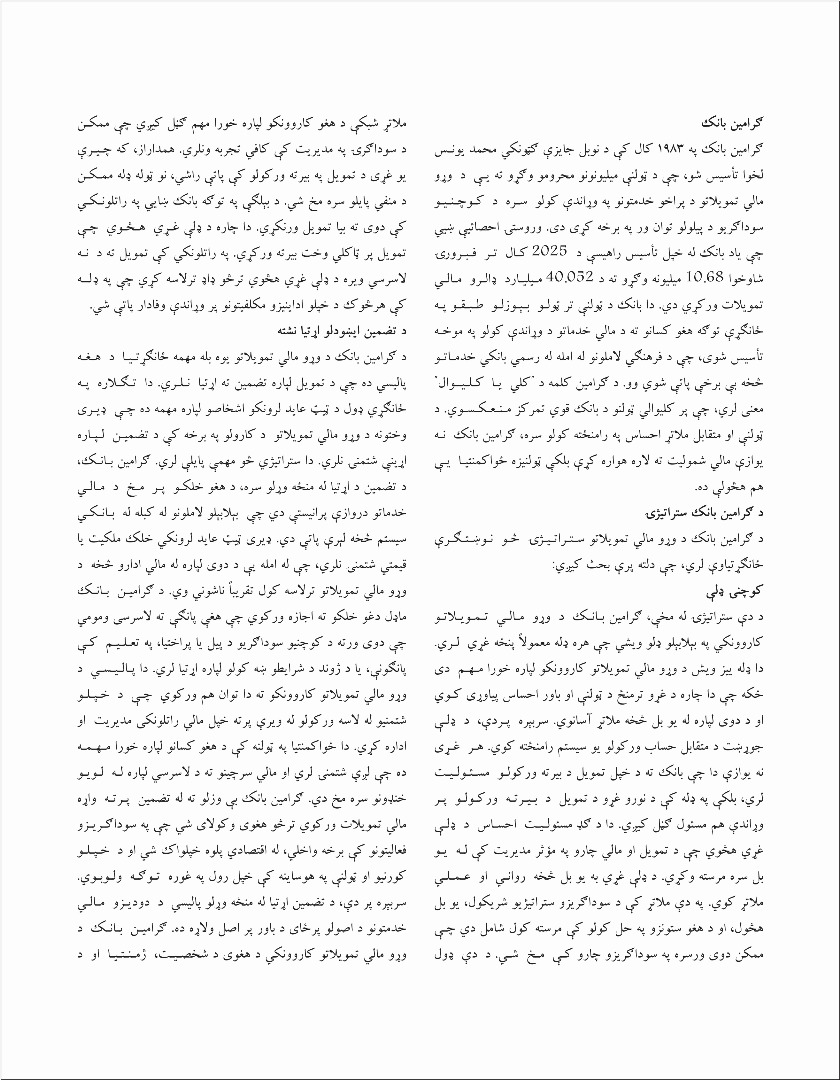 ګرامین بانک
ګرامین بانک په ۱۹۸۳ کال کې د نوبل جایزې ګټونکي محمد یونس
لخوا تأسیس شو، چې د ټولنې میلیونونو محرومو وګړو ته یې د وړو
مالي تمویلاتو د پراخو خدمتونو په وړاندې کولو سره د کوچنیو
سوداګریو د پیلولو توان ور په برخه کړی دی. وروستۍ احصائیې ښيي
چې یاد بانک له خپل تأسیس راهیسې د 2025 کال تر فبرورۍ
شاوخوا 10.68 میلیونه وګړو ته د 40.052 میلیارد ډالرو مالي
تمویلات ورکړي دي. دا بانک د ټولنې تر ټولو بېوزلو طبقو په
ځانګړې توګه هغو کسانو ته د مالي خدماتو د وړاندې کولو په موخه
تأسیس شوی، چې د فرهنګي لاملونو له امله له رسمي بانکي خدماتو
څخه بې برخې پاتې شوي وو. د ګرامین کلمه د "کلي یا کلیوال"
معنی لري، چې پر کلیوالي ټولنو د بانک قوي تمرکز منعکسوي. د
ټولنې او متقابل ملاتړ احساس په رامنځته کولو سره، ګرامین بانک نه
یوازې مالي شمولیت ته لاره هواره کړې بلکې ټولنیزه ځواکمنتیا یې
هم هڅولې ده.
د ګرامین بانک ستراتیژۍ
د ګرامین بانک د وړو مالي تمویلاتو ستراتیژۍ څو نوښتګرې
ځانګړتیاوې لري، چې دلته پرې بحث کیږي:
کوچنۍ ډلې
د دې ستراتیژۍ له مخې، ګرامین بانک د وړو مالي تمویلاتو
کاروونکي په بېلابېلو ډلو ویشي چې هره ډله معمولاً پنځه غړي لري.
دا ډله ییز ویش د وړو مالي تمویلاتو کاروونکو لپاره خورا مهم دی
ځکه چې دا چاره د غړو ترمنځ د ټولنې او باور احساس پیاوړی کوي
او د دوی لپاره له یو بل څخه ملاتړ آسانوي. سربېره پردې، د ډلې
جوړښت د متقابل حساب ورکولو یو سیستم رامنځته کوي. هر غړی
نه یوازې دا چې بانک ته د خپل تمویل د بیرته ورکولو مسئولیت
لري، بلکې په ډله کې د نورو غړو د تمویل د بیرته ورکولو پر
وړاندې هم مسئول ګڼل کیږي. دا د ګډ مسئولیت احساس د ډلې
غړي هڅوي چې د تمویل او مالي چارو په مؤثر مدیریت کې له یو
بل سره مرسته وکړي. د ډلې غړي به یو بل څخه رواني او عملي
ملاتړ کوي. په دې ملاتړ کې د سوداګریزو ستراتیژیو شریکول، یو بل
هڅول، او د هغو ستونزو په حل کولو کې مرسته کول شامل دي چې
ممکن دوی ورسره په سوداګریزو چارو کې مخ شي. د دې ډول
ملاتړ شبکې د هغو کاروونکو لپاره خورا مهم ګڼل کیږي چې ممکن
د سوداګرۍ په مدیریت کې کافي تجربه ونلري. همداراز، که چیرې
یو غړی د تمویل په بیرته ورکولو کې پاتې راشي، نو ټوله ډله ممکن
د منفي پایلو سره مخ شي. د بېلګې په توګه بانک ښايي په راتلونکي
کې دوی ته بیا تمویل ورنکړي. دا چاره د ډلې غړي هڅوي چې
تمویل پر ټاکلي وخت بیرته ورکړي. په راتلونکي کې تمویل ته د نه
لاسرسي ویره د ډلې غړي هڅوي ترڅو ډاډ ترلاسه کړي چې په ډله
کې هرڅوک د خپلو اداینیزو مکلفیتونو پر وړاندې وفادار پاتې شي.
د تضمین ایښودلو اړتیا نشته
د ګرامین بانک د وړو مالي تمویلاتو یوه بله مهمه ځانګړتیا د هغه
پالیسي ده چې د تمویل لپاره تضمین ته اړتیا نلري. دا تګلاره په
ځانګړي ډول د ټیټ عاید لرونکو اشخاصو لپاره مهمه ده چې ډیری
وختونه د وړو مالي تمویلاتو د کارولو په برخه کې د تضمین لپاره
اړینې شتمنۍ نلري. دا ستراتیژي څو مهمې پایلې لري. ګرامین بانک،
د تضمین د اړتیا له منځه وړلو سره، د هغو خلکو پر مخ د مالي
خدماتو دروازې پرانیستې دي چې بېلابېلو لاملونو له کبله له بانکي
سیستم څخه لېرې پاتې دي. ډیری ټیټ عاید لرونکي خلک ملکیت یا
قیمتي شتمنۍ نلري، چې له امله یې د دوی لپاره له مالي ادارو څخه د
وړو مالي تمویلاتو ترلاسه کول تقریباً ناشونې وي. د ګرامین بانک
ماډل دغو خلکو ته اجازه ورکوي چې هغې پانګې ته لاسرسی ومومي
چې دوی ورته د کوچنیو سوداګریو د پیل یا پراختیا، په تعلیم کې
پانګونې، یا د ژوند د شرایطو ښه کولو لپاره اړتیا لري. دا پالیسي د
وړو مالي تمویلاتو کاروونکو ته دا توان هم ورکوي چې د خپلو
شتمنیو له لاسه ورکولو له ویرې پرته خپل مالي راتلونکی مدیریت او
اداره کړي. دا خواکمنتیا په ټولنه کې د هغو کسانو لپاره خورا مهمه
ده چې لږې شتمنۍ لري او مالي سرچینو ته د لاسرسي لپاره له لویو
خنډونو سره مخ دي. ګرامین بانک بې وزلو ته له تضمین پرته واړه
مالي تمویلات ورکوي ترڅو هغوی وکولای شي چې په سوداګریزو
فعالیتونو کې برخه واخلي، له اقتصادي پلوه خپلواک شي او د خپلو
کورنیو او ټولنې په هوساینه کې خپل رول په غوره توګه ولوبوي.
سربېره پر دې، د تضمین اړتیا له منځه وړلو پالیسي د دودیزو مالي
خدمتونو د اصولو پرځای د باور پر اصل ولاړه ده. ګرامین بانک د
وړو مالي تمویلاتو کاروونکي د هغوی د شخصیت، ژمنتیا او د